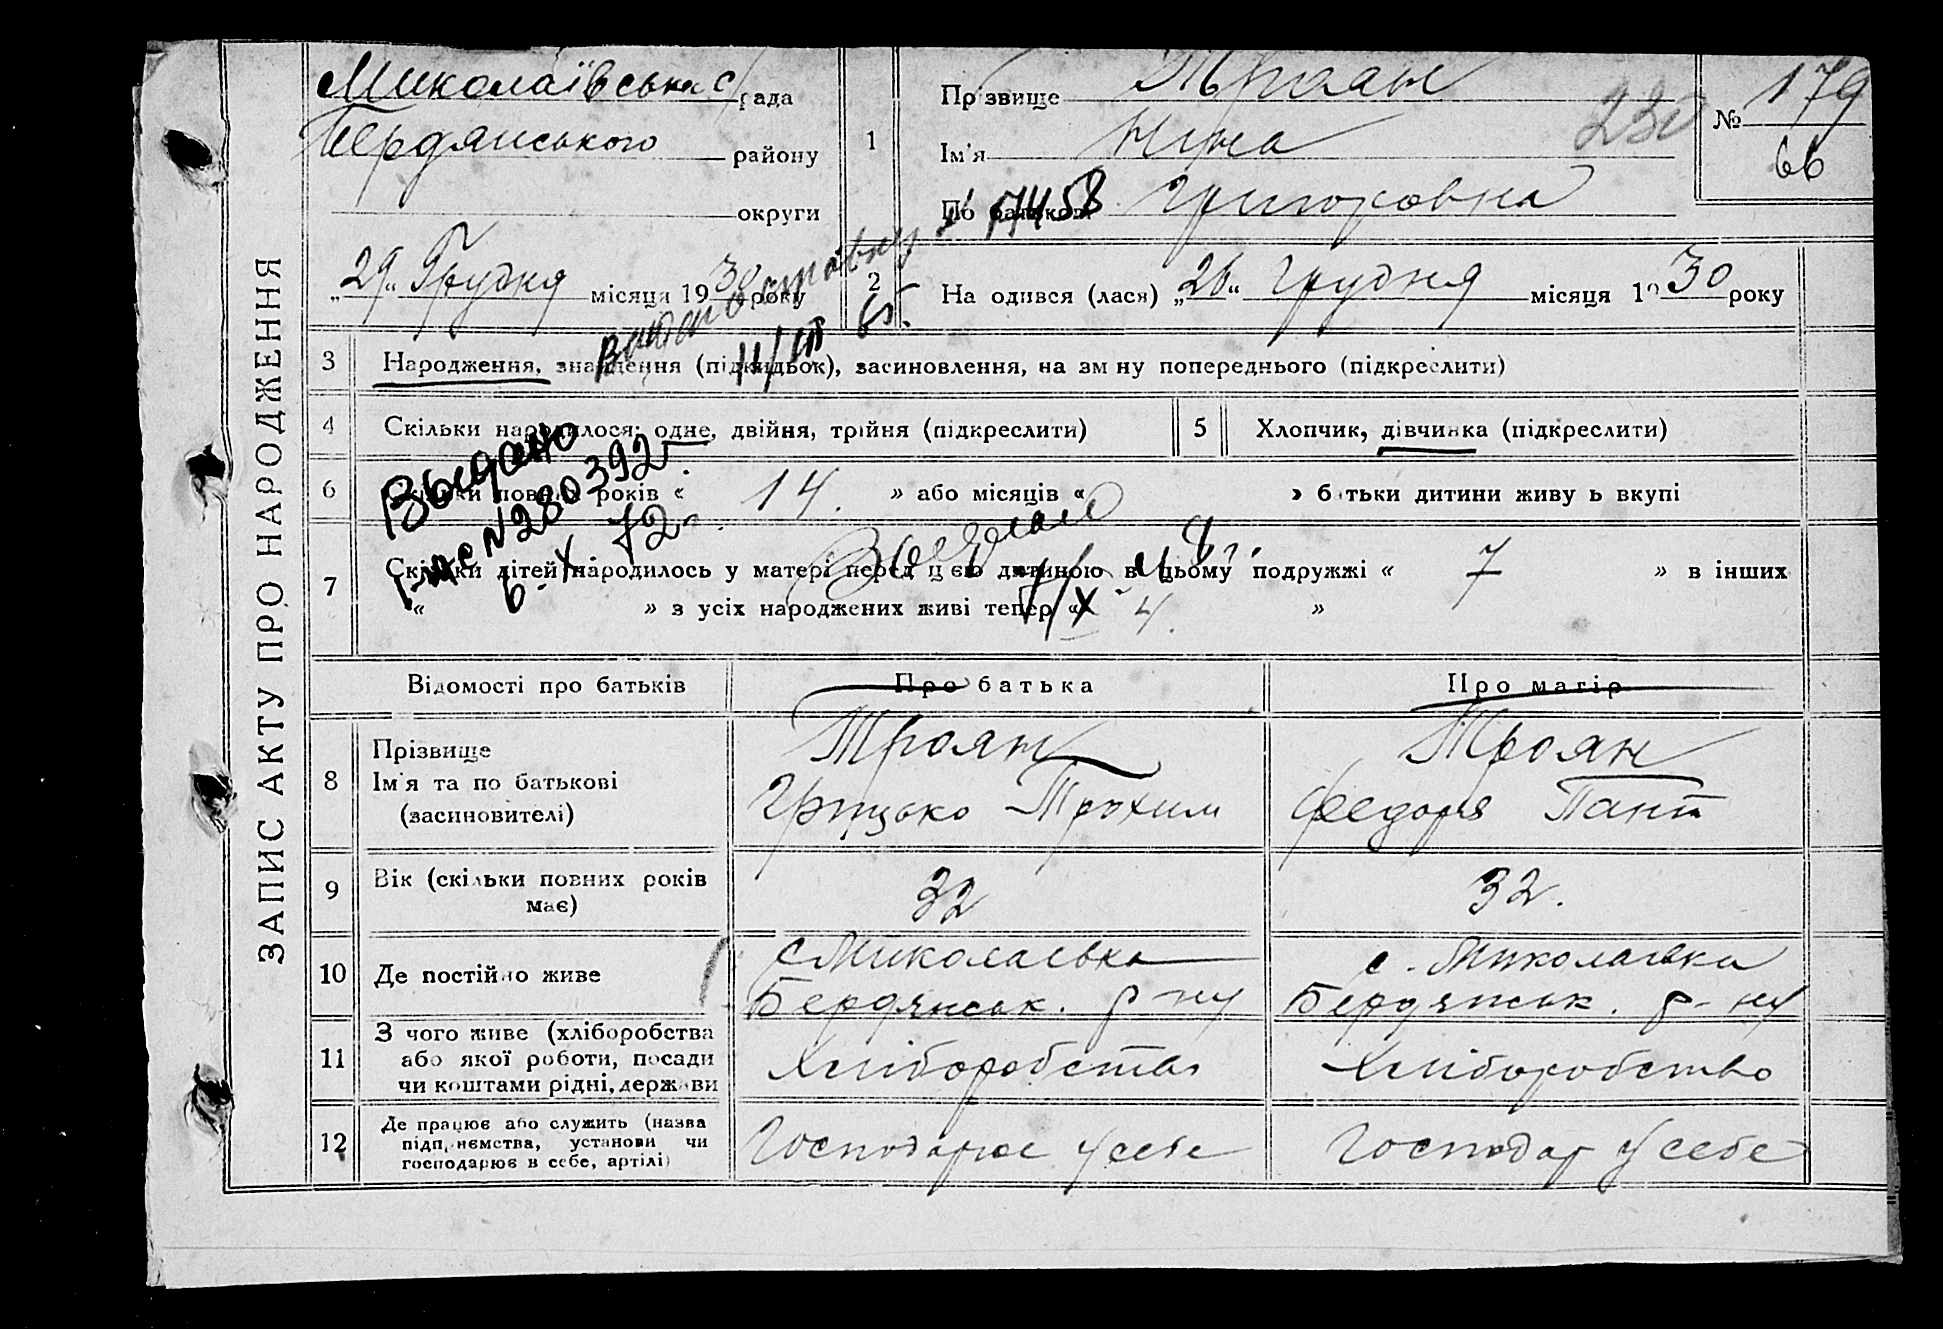 ЗАПИС АКТУ ПРО НАРОДЖЕННЯ
Миколаївська с/рада
Бердянського району
округи
„29“ Грудня місяця 1930 року
1
Прізвище Троян
Ім'я Нина
По батькові Григоровна
230
№ 179
66
17458
2
На одився (лася) „26“ Грудня місяця 1930 року
11/III 65.
3 Народження, знайдення (підкидьок), засиновлення, на зм ну попереднього (підкреслити)
4 Скільки народилося: одне, двійня, трійня (підкреслити)
5 Хлопчик, дівчинка (підкреслити)
Выдано
№280392
6-X 72г.
6 Скільки повних років « 14. » або місяців « » батьки дитини живу ь вкупі
7 Скільки дітей народилось у матері перед цією дитиною в цьому подружжі « 7 » в інших
« » з усіх народжених живі тепер « 4. »
Відомості про батьків
Про батька
Про матір
8 Прізвище
Ім'я та по батькові
(засиновителі)
Троян
Грицько Трохим
Троян
Федора Пант
9 Вік (скільки повних років має)
32
32.
10 Де постійно живе
с Миколаевка
Бердянськ. р-ну
с. Миколаевка
Бердянськ. р-ну
11 З чого живе (хліборобства
або якої роботи, посади
чи коштами рідні, держави
Хліборобство
Хліборобство
12 Де працює або служить (назва
підприємства, установи чи
господарює в себе, артілі)
Господарює у себе
Господар у себе